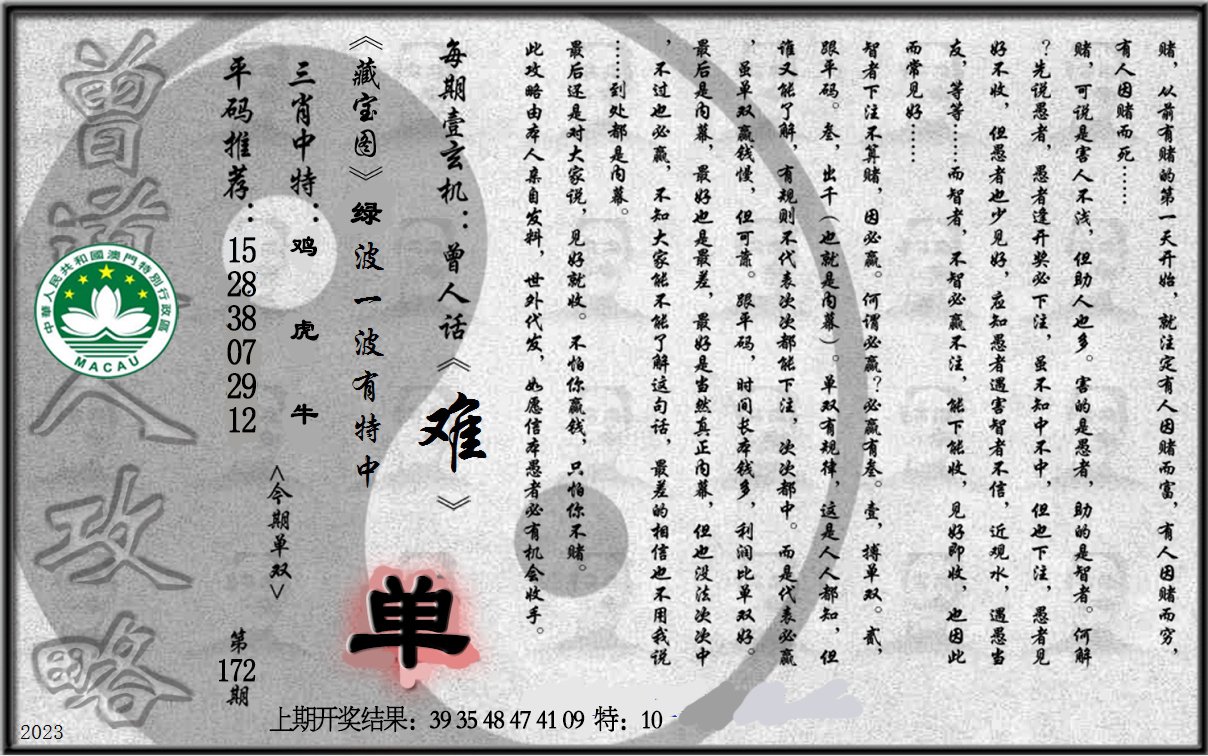 赌，从前有赌的第一天开始，就注定有人因赌而富，有人因赌而穷，
有人因赌而死……
赌，可说是害人不浅，但助人也多。害的是愚者，助的是智者。何解
？先说愚者，愚者逢开奖必下注，虽不知中不中，但也下注，愚者见
好不收，但愚者也少见好，应知愚者遇害智者不信，近观水，遇愚当
友，等等……而智者，不智必赢不注，能下能收，见好即收，也因此
而常见好……
智者下注不算赌，因必赢。何谓必赢？必赢有叁。壹，搏单双。贰，
跟平码。叁，出千（也就是内幕）。单双有规律，这是人人都知，但
谁又能了解，有规则不代表次次都能下注，次次都中。而是代表必赢
，虽单双赢钱慢，但可靠。跟平码，时间长本钱多，利润比单双好。
最后是内幕，最好也是最差，最好是当然真正内幕，但也没法次次中
，不过也必赢，不知大家能不能了解这句话，最差的相信也不用我说
……到处都是内幕。
最后还是对大家说，见好就收。不怕你赢钱，只怕你不赌。
此攻略由本人亲自发料，世外代发，如愿信本愚者必有机会收手。
每期壹玄机：曾人话《难》
《藏宝图》绿波一波有特中
单
三肖中特：鸡虎牛
<今期单双>
平码推荐：15 28 38 07 29 12
第172期
曾道人攻略
中華人民共和國澳門特別行政區
MACAU
上期开奖结果：39 35 48 47 41 09 特：10
2023